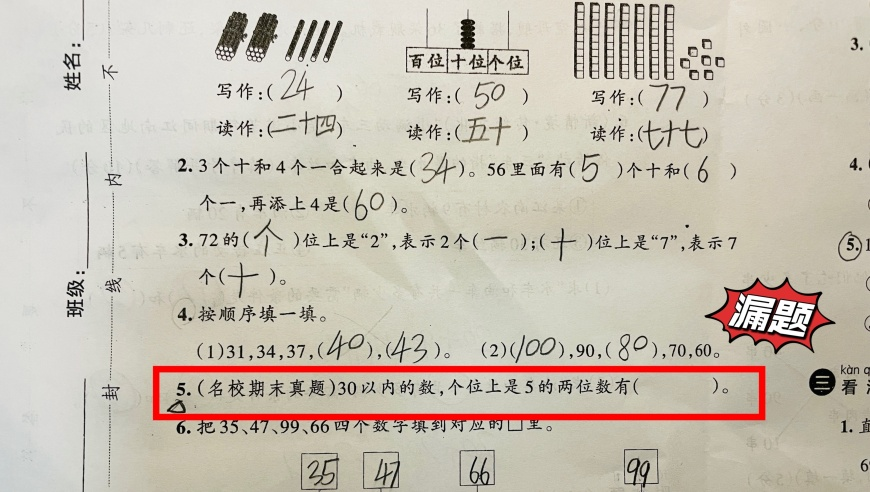 姓名：
班级：
不
内
线
封
百位 十位 个位
写作：( 24 ) 写作：( 50 ) 写作：( 77 )
读作：(二十四) 读作：(五十) 读作：(七十七)
2. 3个十和4个一合起来是(34)。56里面有(5)个十和(6)
个一，再添上4是(60)。
3. 72的(个)位上是“2”，表示2个(一)；(十)位上是“7”，表示7
个(十)。
4. 按顺序填一填。
(1)31,34,37,(40),(43)。 (2)(100),90,(80),70,60。
漏题
5. (名校期末真题)30以内的数，个位上是5的两位数有( )。
6. 把35、47、99、66四个数字填到对应的□里。
35 47 66 99
3.
4.
5.
kàn
三 看
1.